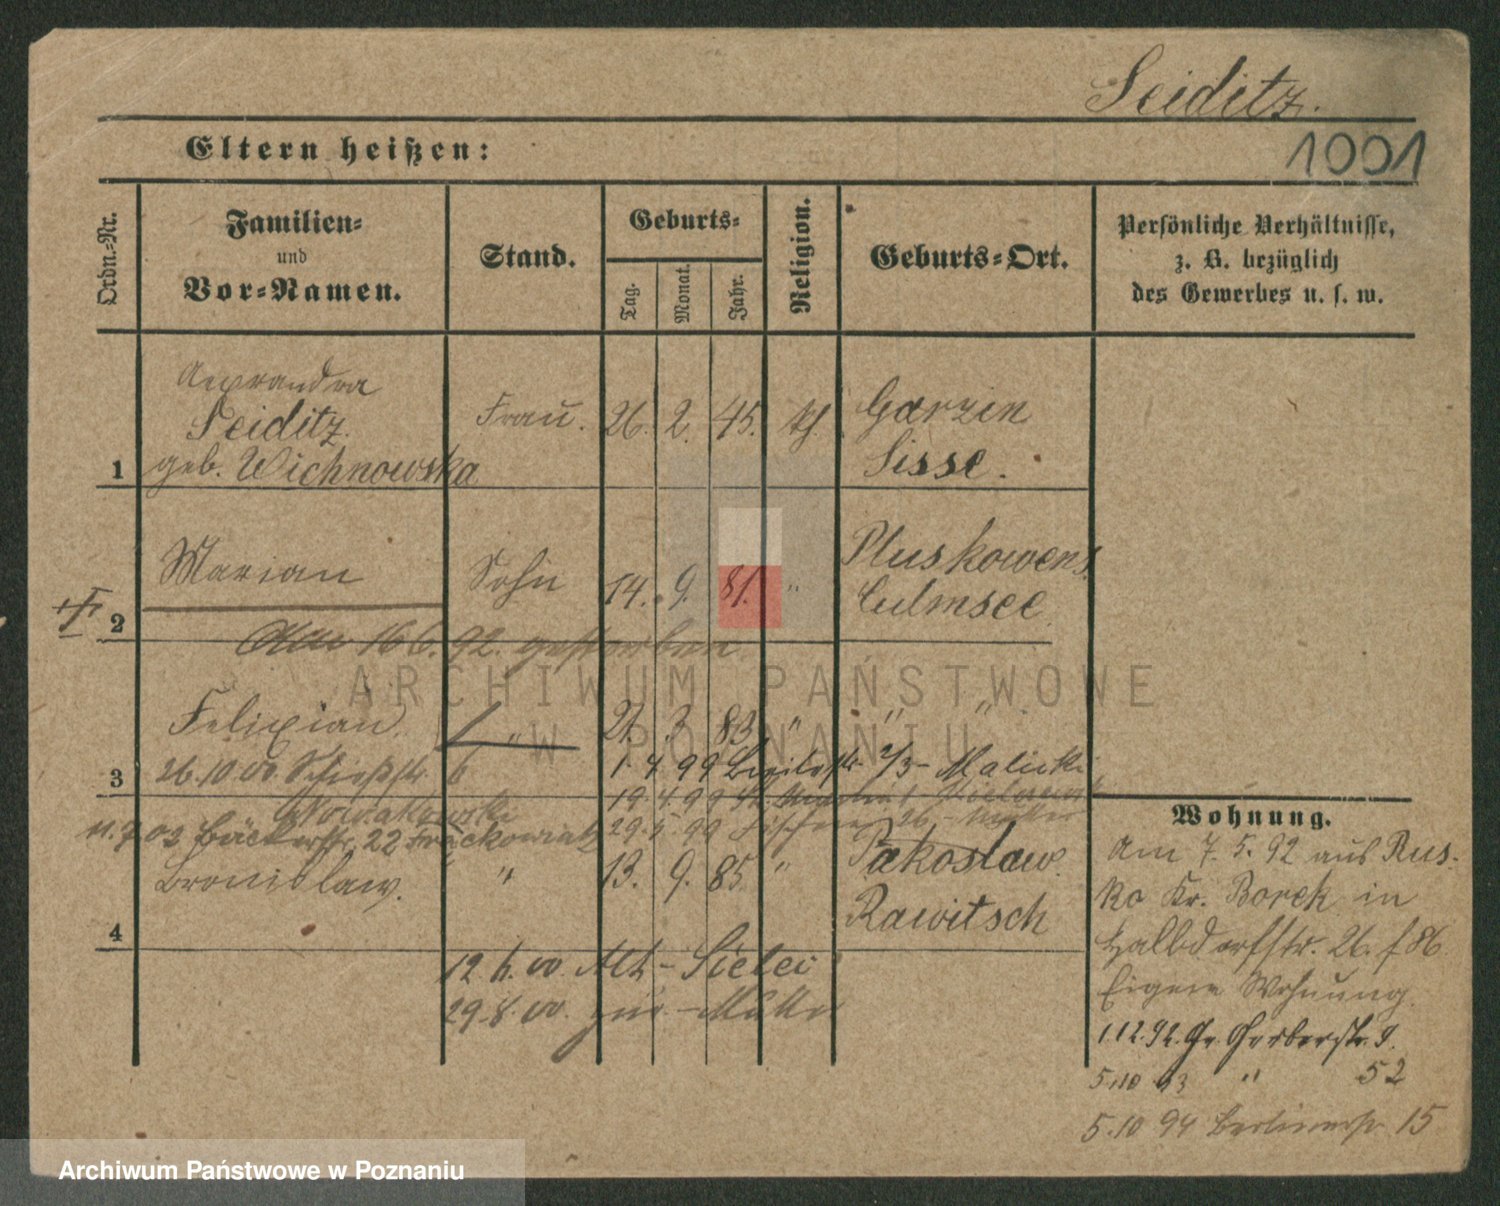 Seiditz.
1001
Eltern heißen:
Ordn.-Nr.
Familien-
und
Vor-Namen.
Stand.
Geburts-
Tag.
Monat.
Jahr.
Religion.
Geburts-Ort.
Persönliche Verhältnisse,
z. B. bezüglich
des Gewerbes u. s. w.
1
Seiditz.
geb. Wichnowska
Frau.
26. 2. 45.
Garzin
Lisse.
2
Marian
Sohn
14. 9. 81. "
Pluskowens
Culmsee
16 6. 92. gestorben
3
Felixian.
"
21. 3. 83. " " "
26.10 00. Schießstr. 6
1 4 99 2/3 - Malicki
19. 4. 99
Nowakowski
29. 5. 99 26.
11.7 03 Bäckerstr. 22
4
Bronislaw.
"
13. 9. 85. "
Pakoslaw.
Rawitsch
12 6. 00.
29.8.00. zur - Mutter
Wohnung.
Am 7. 5. 92 aus Rus-
ko Kr. Borek in
Halbdorfstr. 26.
Eigene Wohnung.
1.12.92. Gr. Gerberstr. 9.
5.10 93 " 52
5.10 94 Berlinerstr. 15
ARCHIWUM PAŃSTWOWE
W POZNANIU
Archiwum Państwowe w Poznaniu